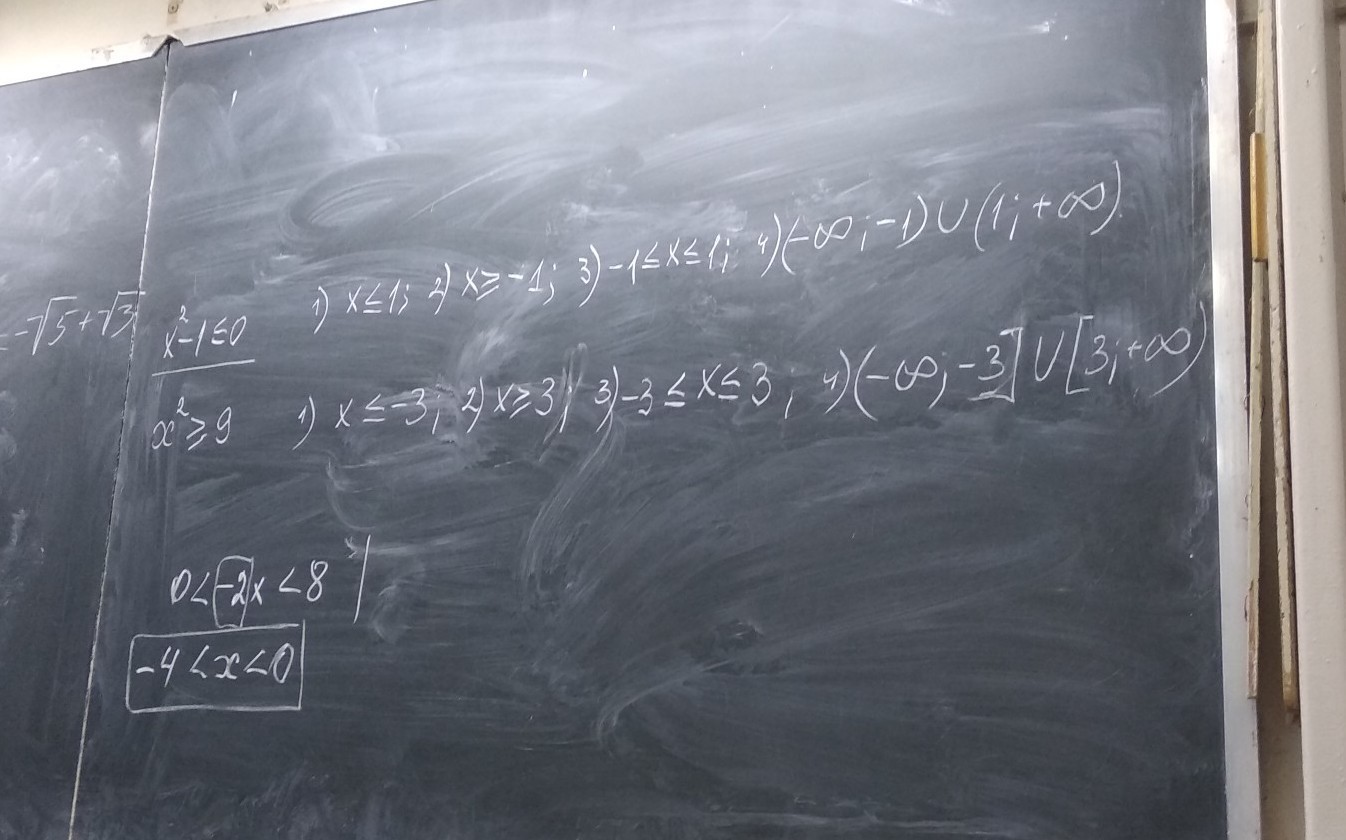 = -√5+√3
x²-1≤0 1) x≤1; 2) x≥-1; 3) -1≤x≤1; 4) (-∞; -1) ∪ (1; +∞)
x²≥9 1) x≤-3; 2) x≥3; 3) -3≤x≤3; 4) (-∞; -3] ∪ [3; +∞)
0<-2x<8 |
-4<x<0